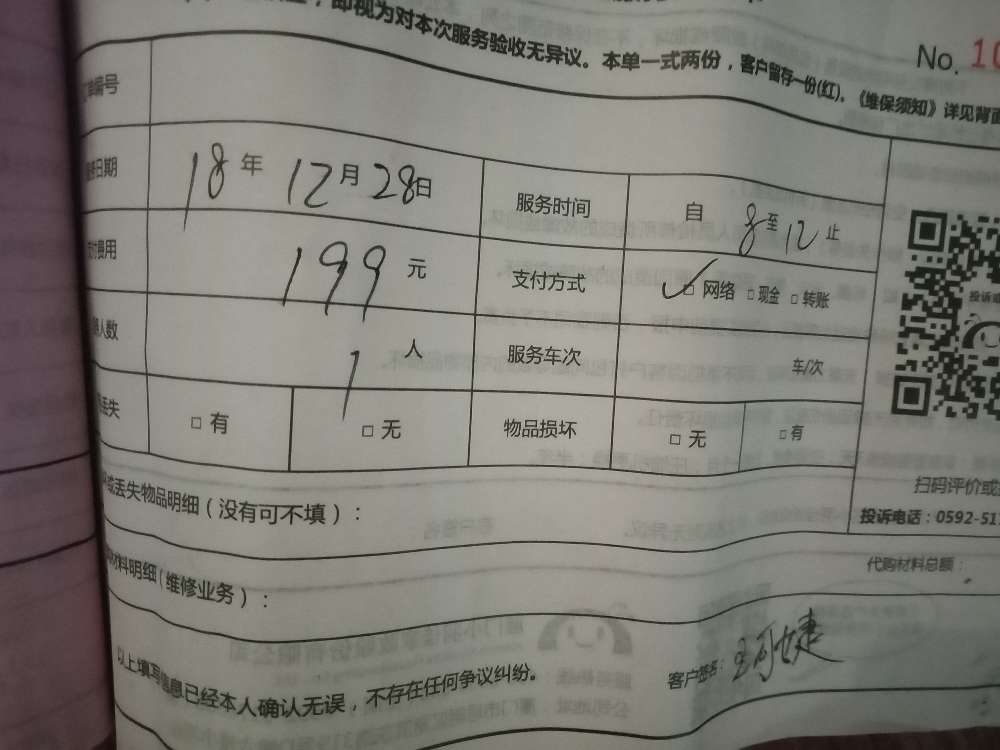 即视为对本次服务验收无异议。本单一式两份，客户留存一份(红)。《维保须知》详见背面
No. 10
单编号
日期 18 年 12 月 28 日 服务时间 自 8 至 12 止
付费用 199 元 支付方式 ✓□ 网络 □ 现金 □ 转账
人数 1 人 服务车次 车/次
丢失 □ 有 □ 无 物品损坏 □ 无 □ 有
投诉或
扫码评价或
或丢失物品明细（没有可不填）：
投诉电话：0592-517
材料明细（维修业务）：
代购材料总额：
以上填写信息已经本人确认无误，不存在任何争议纠纷。
客户签名：